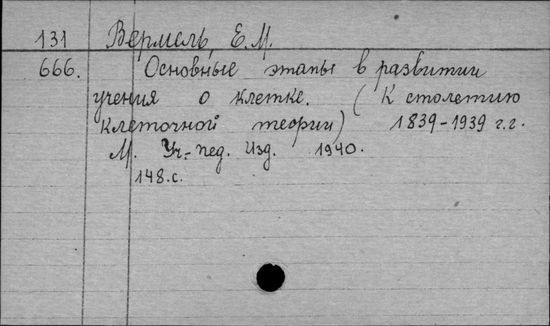 131 Вермель, Е. М.
666. Основные этапы в развитии
учения о клетке. (К столетию
клеточной теории) 1839-1939 г.г.
М. Уч.-пед. Изд. 1940.
148.с.